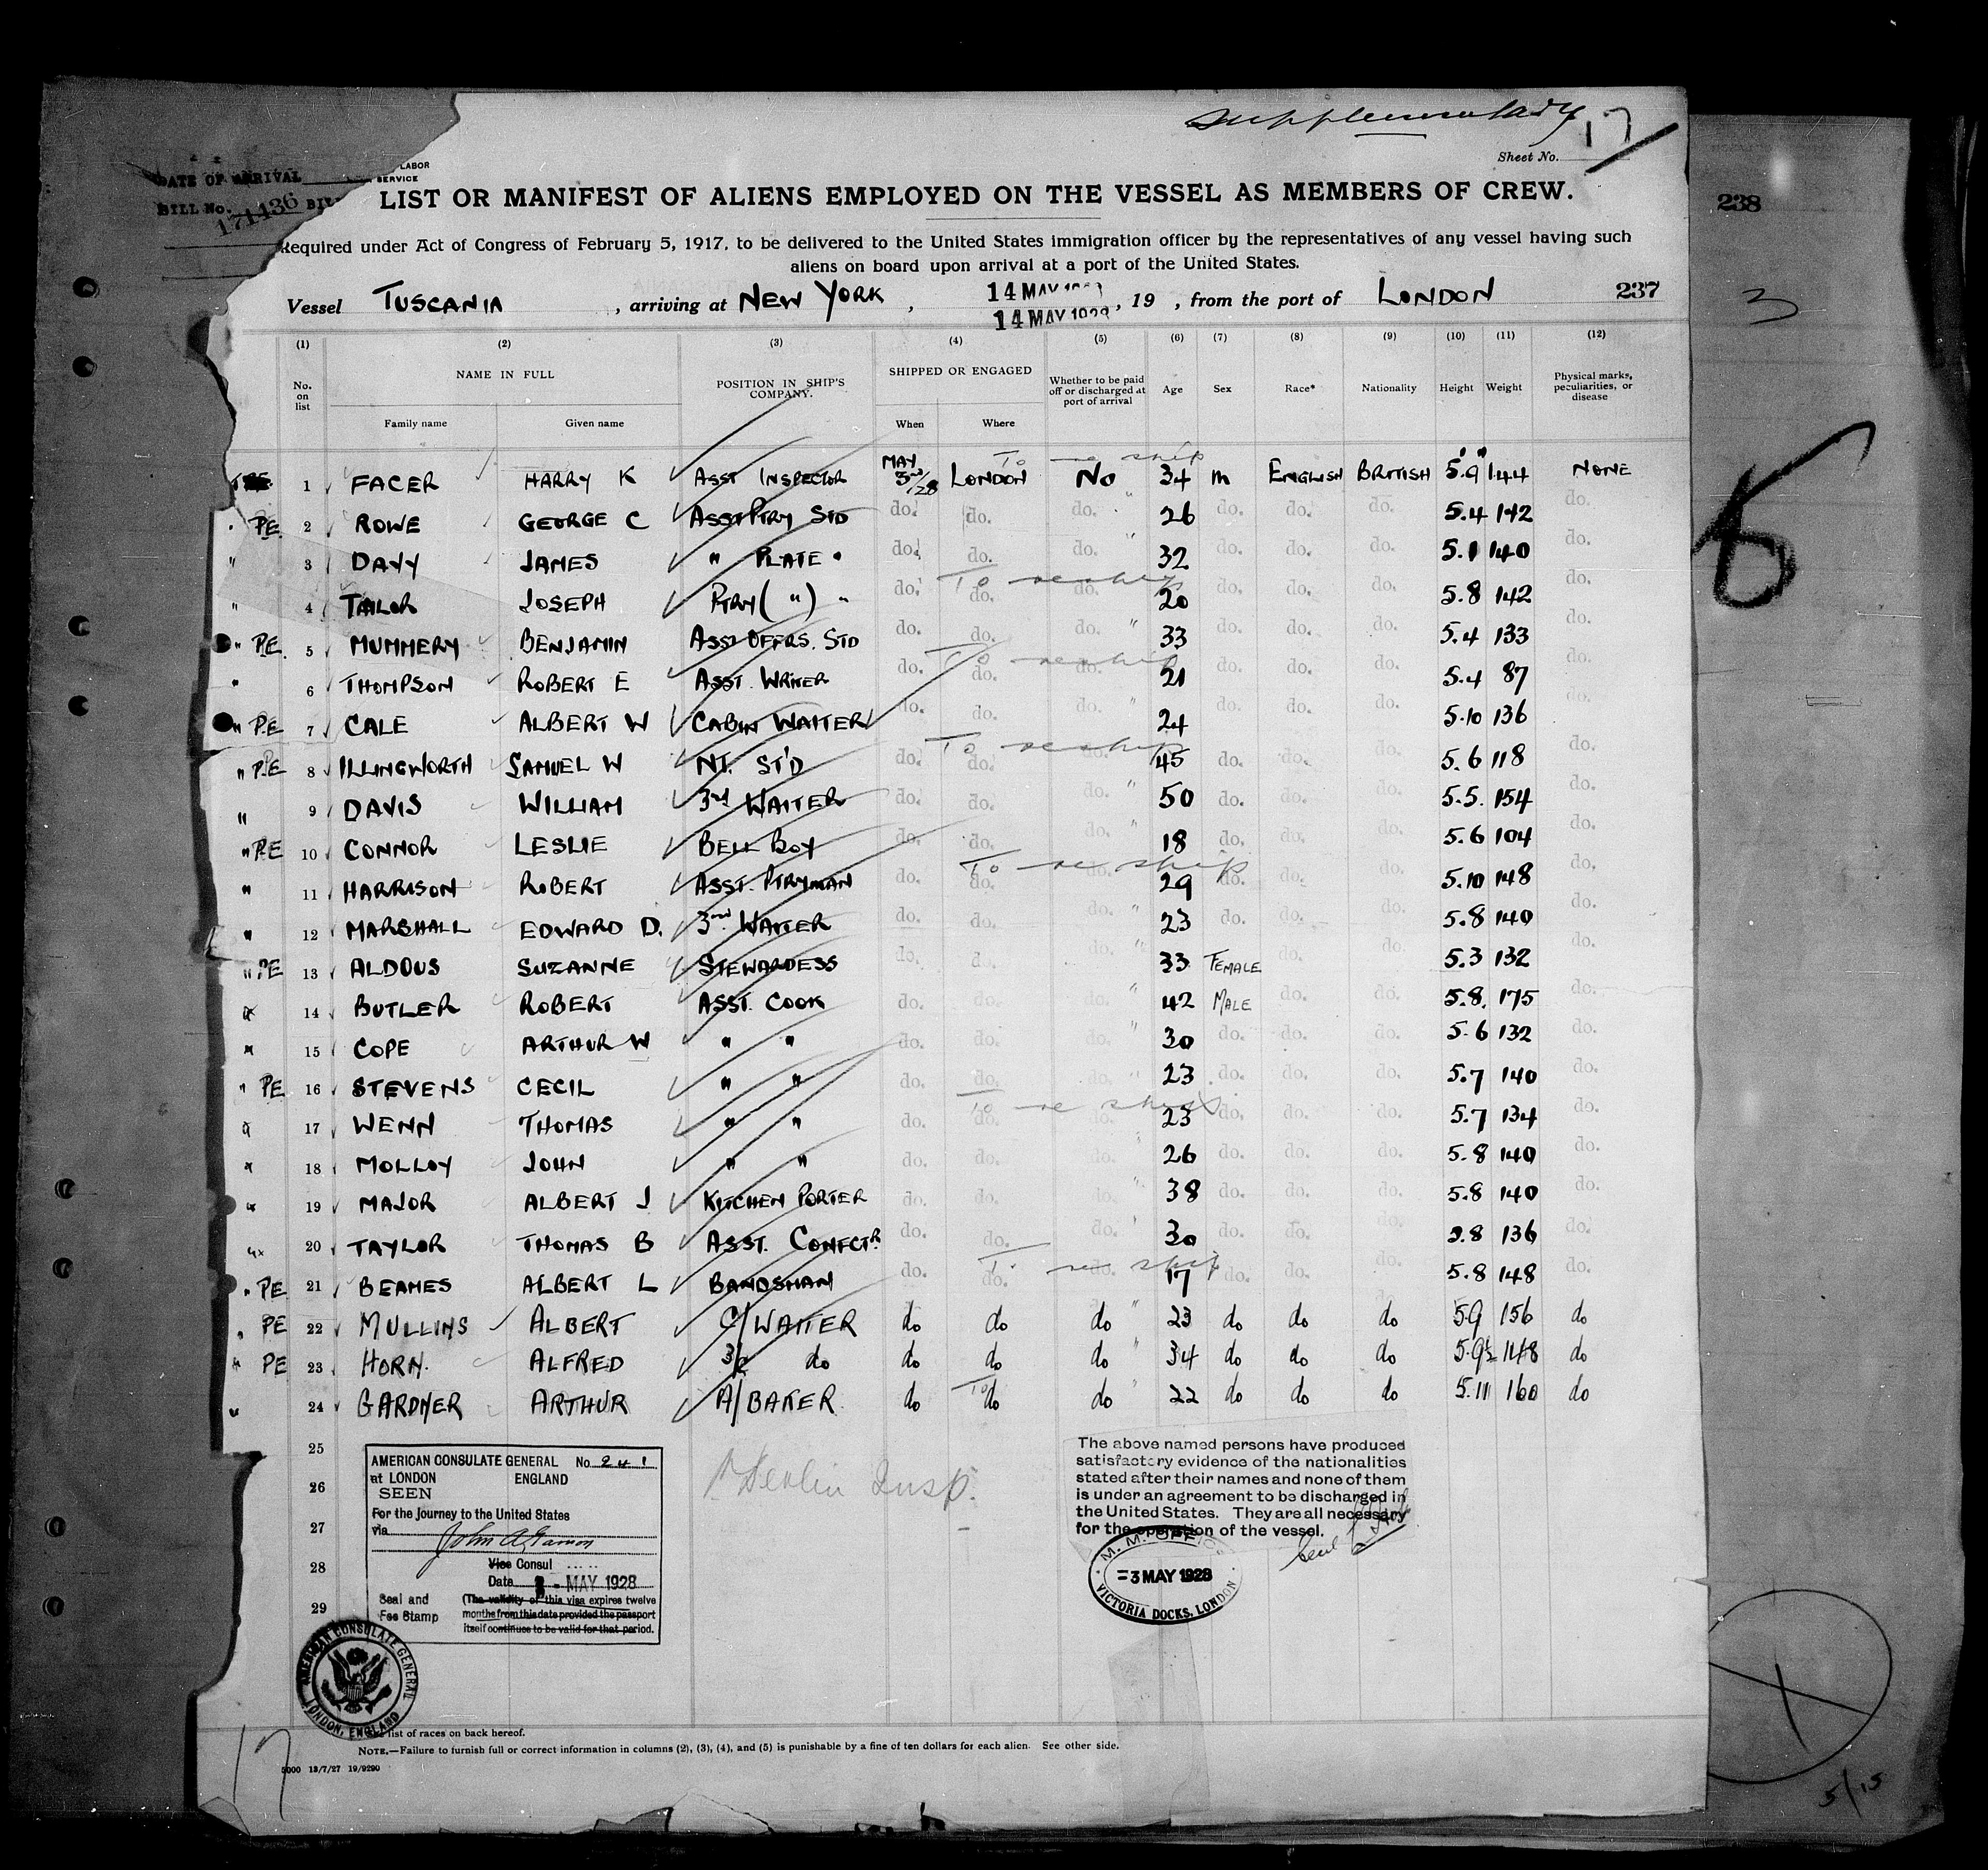 supplementary 17
Sheet No.
LABOR
SERVICE
DATE OF ARRIVAL
BILL No. 171436
238
LIST OR MANIFEST OF ALIENS EMPLOYED ON THE VESSEL AS MEMBERS OF CREW.
Required under Act of Congress of February 5, 1917, to be delivered to the United States immigration officer by the representatives of any vessel having such
aliens on board upon arrival at a port of the United States.
14 MAY
Vessel TUSCANIA , arriving at NEW YORK , 14 MAY 1928 , 19 , from the port of LONDON 237
3
(1) (2) (3) (4) (5) (6) (7) (8) (9) (10) (11) (12)
No. on list NAME IN FULL POSITION IN SHIP'S COMPANY. SHIPPED OR ENGAGED Whether to be paid off or discharged at port of arrival Age Sex Race* Nationality Height Weight Physical marks, peculiarities, or disease
Family name Given name When Where
To re ship
1 FACER HARRY K ASST INSPECTOR MAY 3rd/28 LONDON No 34 M ENGLISH BRITISH 5.9 144 NONE
PE 2 ROWE GEORGE C ASST PTRY STD do. do. do. " 26 5.4 142 do.
" 3 DAVY JAMES " PLATE " do. do. do. " 32 do. do. do. 5.1 140 do.
To reship
" 4 TAILOR JOSEPH PTRY ( " ) " do. do. 20 do. do. do. 5.8 142 do.
" PE 5 MUMMERY BENJAMIN ASST OFFRS. STD do. do. do. " 33 do. do. do. 5.4 133 do.
To reship
" 6 THOMPSON ROBERT E ASST. WRITER do. do. do. 21 do. do. do. 5.4 87 do.
" PE 7 CALE ALBERT W CABIN WAITER do. do. do. " 24 do. do. do. 5.10 136 do.
To reship
" PE 8 ILLINGWORTH SAMUEL W NT. ST'D do. do. do. 45 do. do. do. 5.6 118 do.
" 9 DAVIS WILLIAM 3rd WAITER do. do. do. " 50 do. do. do. 5.5. 154 do.
" PE 10 CONNOR LESLIE BELL BOY do. do. do. " 18 do. do. do. 5.6 104 do.
To re ship
" 11 HARRISON ROBERT ASST. PTRYMAN do. do. do. 29 do. do. do. 5.10 148 do.
" 12 MARSHALL EDWARD D. 3rd WAITER do. do. do. " 23 do. do. do. 5.8 140 do.
" PE 13 ALDOUS SUZANNE STEWARDESS do. do. do. " 33 FEMALE do. do. 5.3 132 do.
14 BUTLER ROBERT ASST. COOK do. do. do. " 42 MALE do. do. 5.8. 175 do.
15 COPE ARTHUR W " " do. do. do. " 30 do. do. do. 5.6 132 do.
" PE 16 STEVENS CECIL " " do. do. do. " 23 do. do. do. 5.7 140 do.
To re ship
17 WENN THOMAS " " do. do. do. 23 do. do. do. 5.7 134 do.
18 MOLLOY JOHN " " do. do. do. " 26 do. do. do. 5.8 140 do.
19 MAJOR ALBERT J KITCHEN PORTER do. do. do. " 38 do. do. do. 5.8 140 do.
20 TAYLOR THOMAS B ASST. CONFCTR. do. do. do. " 30 do. do. do. 5.8 136 do.
To re ship
" PE 21 BEAMES ALBERT L BANDSMAN do. do. do. 17 do. do. do. 5.8 148 do.
" PE 22 MULLINS ALBERT C/WAITER do do do " 23 do do do 5.9 156 do
" PE 23 HORN. ALFRED 3/c do do do do " 34 do do do 5.9½ 148 do
" 24 GARDNER ARTHUR A/BAKER do do do " 22 do do do 5.11 160 do
25
26
27
28
29
AMERICAN CONSULATE GENERAL No. 241
at LONDON ENGLAND
SEEN
For the Journey to the United States
via
Vice Consul
Date - MAY 1928
Seal and Fee Stamp
(The validity of this visa expires twelve
months from this date provided the passport
itself continues to be valid for that period.
AMERICAN CONSULATE GENERAL
LONDON, ENGLAND
Devlin Insp.
The above named persons have produced
satisfactory evidence of the nationalities
stated after their names and none of them
is under an agreement to be discharged in
the United States. They are all necessary
for the operation of the vessel.
M. M. OFFICE
-3 MAY 1928
VICTORIA DOCKS, LONDON
list of races on back hereof.
NOTE.—Failure to furnish full or correct information in columns (2), (3), (4), and (5) is punishable by a fine of ten dollars for each alien. See other side.
5000 13/7/27 19/9290
17
6
5/15